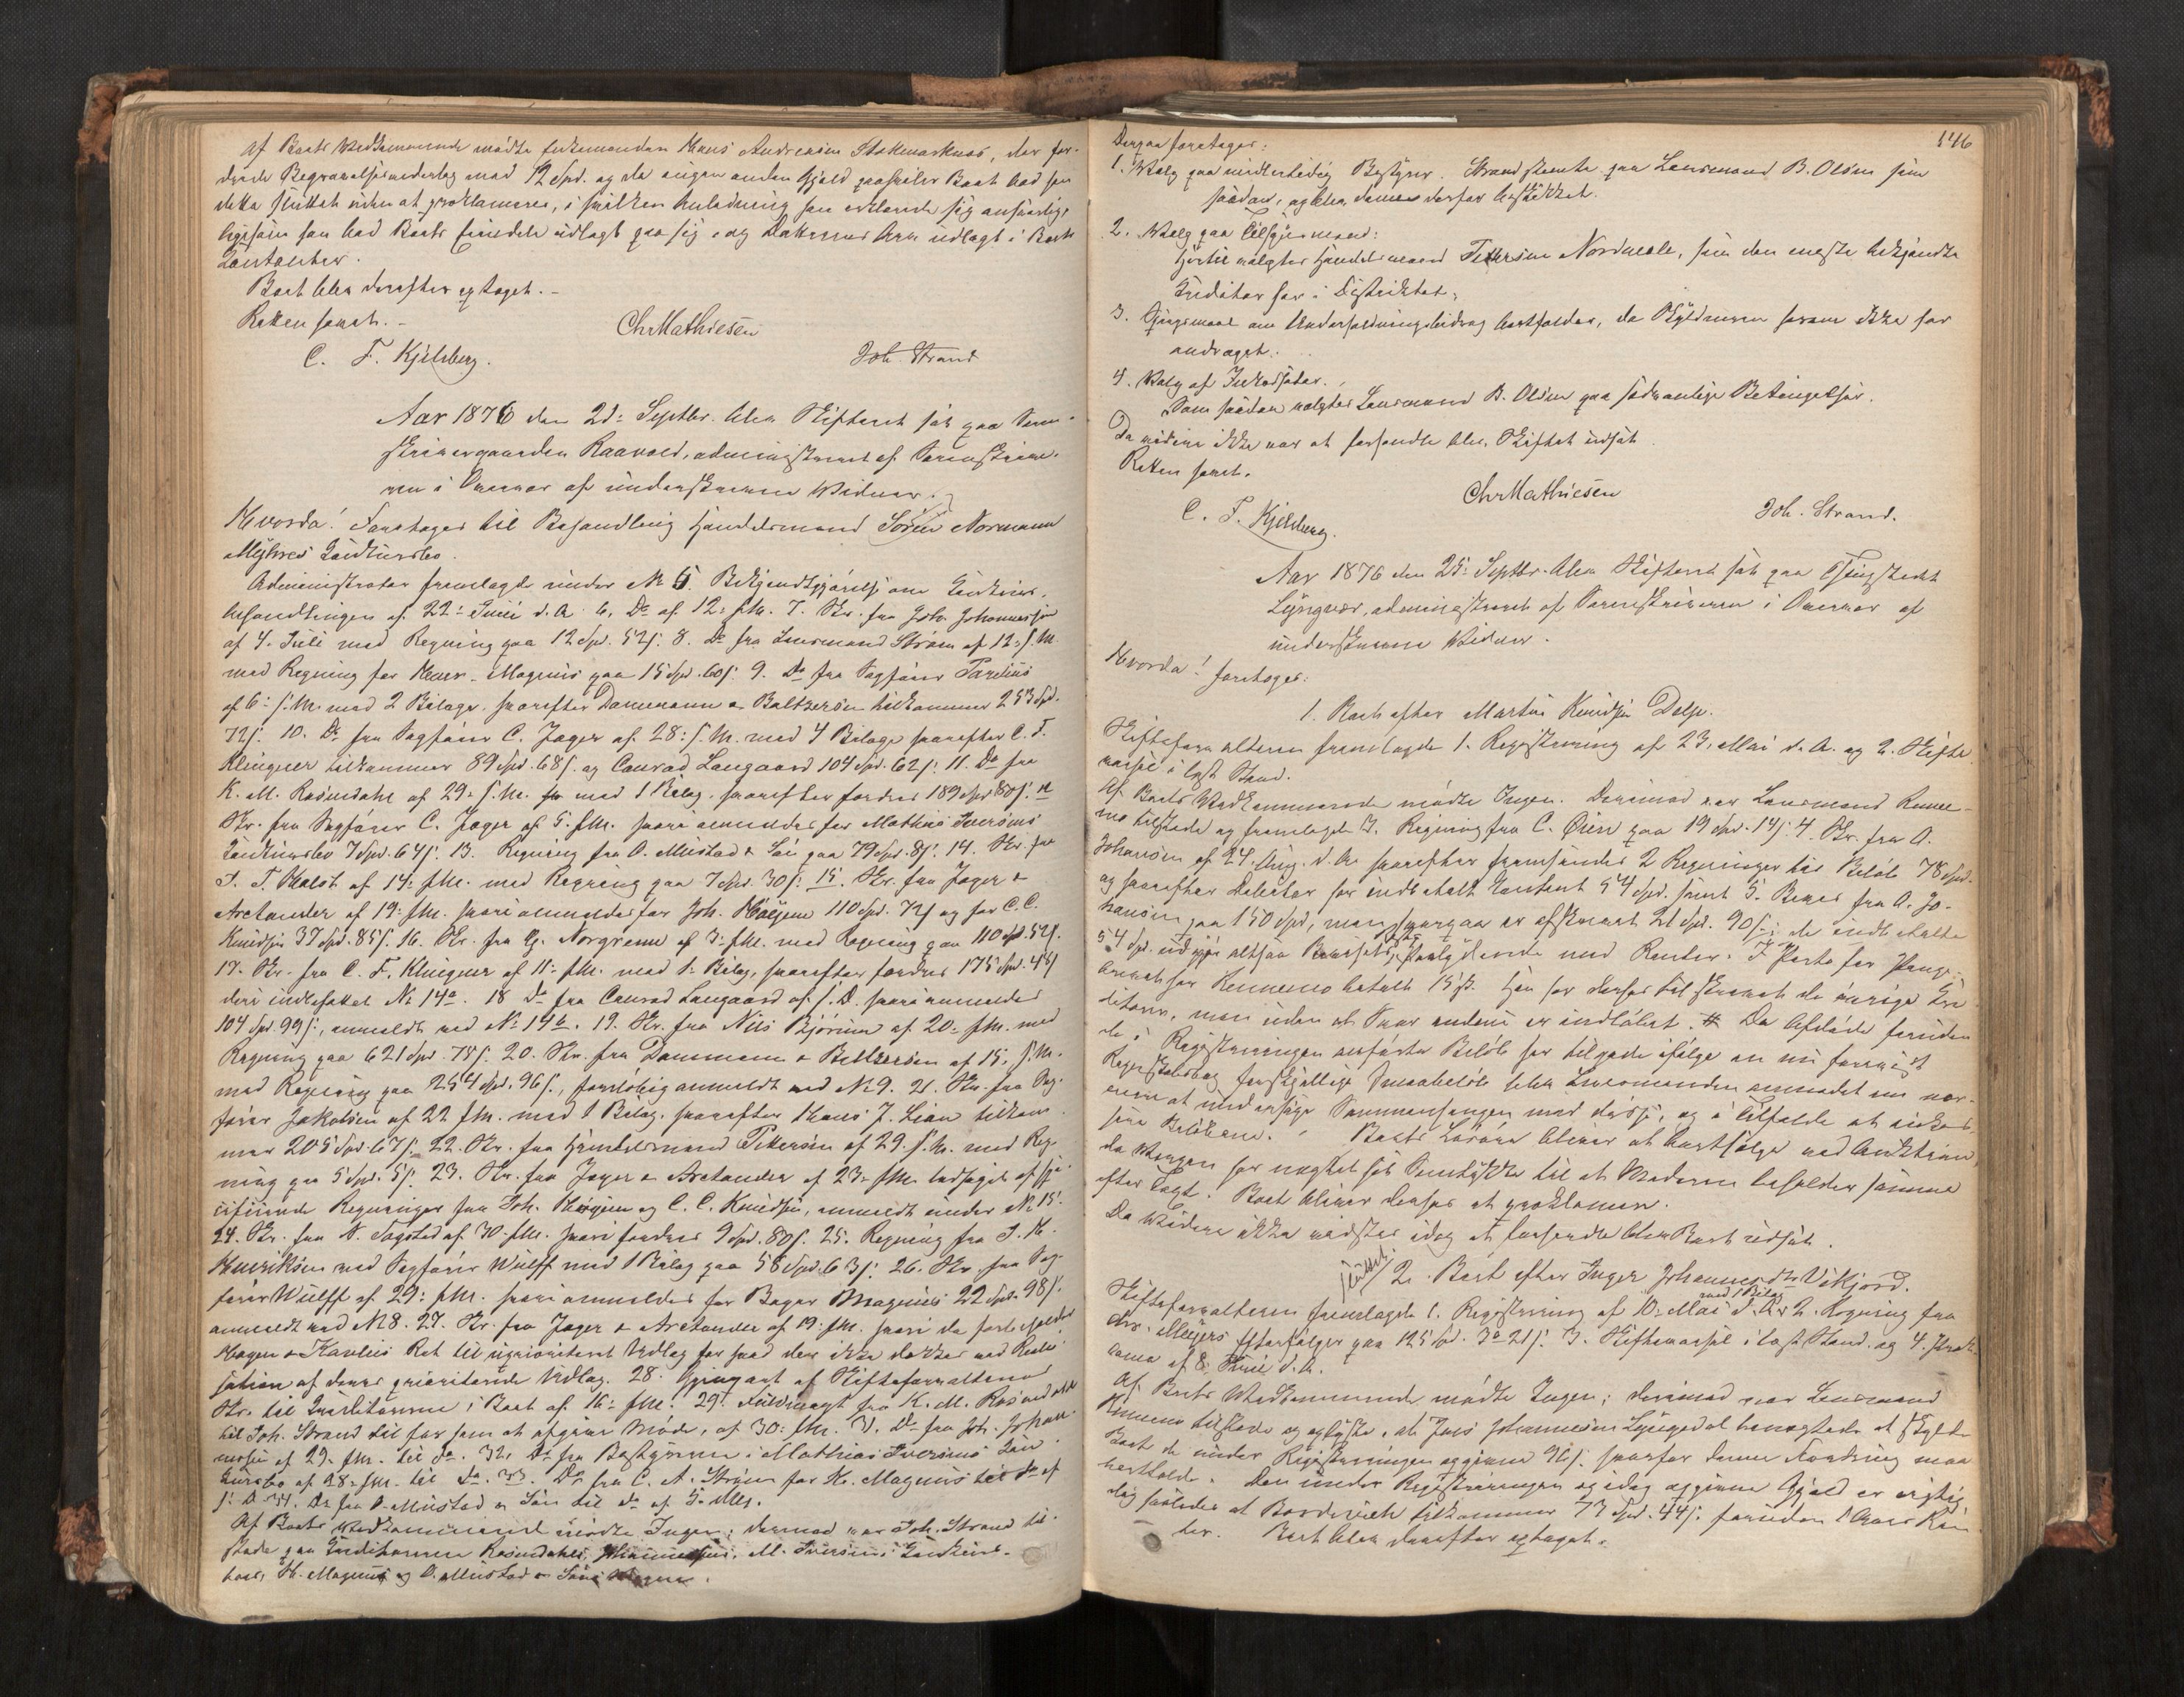 af Boets Vedkommende mødte Enkemanden Hans Andreasen Stokmarknes, der for-
drede Begravelsesudlæg med 12 Spd. og da ingen anden Gjæld paahviler Boet bad han
dette sluttet uden at proklameres, i hvilken Anledning han erklærede sig ansvarlig,
ligesom han bad Boets Eiendele udlagt paa sig, og Døtrenes Arv udlagt i Boets
Contanter.
Boet blev derefter optaget.-
Retten hævet.-
Chr Mathiesen
C. F. Kjelsberg.
Joh. Strand
Aar 1876 den 2d: Septbr. blev Skifteret sat paa Soren-
skrivergaarden Raavold, administreret af Sorenskrive-
ren i Overvær af underskrevne Vidner.
Hvorda! Foretoges til Behandling Handelsmand Sören Normann
Myhres Konkursbo.
Administrator fremlagde under No 5. Bekjendtgjørelse om Konkurs-
behandlingen af 22: Juni d. A. 6. Do af 12: f.M. 7. Skr. fra Joh. Johannesen
af 4. Juli med Regning paa 12 Spd. 52 s. 8. Do fra Lensmand Strøm af 12: f. M.
med Regning for Magnus paa 15 Spd. 60 s. 9. Do fra Sagfører Parelius
af 6: f. M. med 2 Bilage, hvorefter Dammann & Baltzersen tilkommer 253 Spd.
72 s. 10. Do fra Sagfører C. Jager af 28: f. M. med 4 Bilage hvorefter C. F.
Klingner tilkommer 89 Spd. 68 s. og Conrad Langaard 104 Spd. 62 s. 11. Do fra
K. M. Rosendahl af 29: f. M. med 1 Bilag, hvorefter fordres 189 Spd. 80 s. 12
Skr. fra Sagfører C. Jager af 5. f.M. hvori anmeldes for Mathias Iversens
Konkursbo 7 Spd. 64 s. 13. Regning fra O. Mustad & Søn paa 79 Spd. 8 s. 14. Skr. fra
af 14: f.M. med Regning paa 7 Spd. 30 s. 15. Skr. fra Jager &
Arctander af 19: f.M. hvori anmeldes for Joh. 110 Spd. 72 s og for C. C.
Knudsen 37 Spd. 85 s. 16. Skr. fra Norgreen af 3: f.M. med Regning paa 110 Spd. 52 s.
17. Skr. fra C. F. Klingner af 11: f.M. med 1 Bilag, hvorefter fordres 175 Spd. 44 s
deri indbefattet No 14a. 18 Do fra Conrad Langaard af s. D. hvori anmeldes
104 Spd. 99 s., anmeldt ved No 14b. 19. Skr. fra Nils Bjørnum af 20: f.M. med
Regning paa 621 Spd. 78 s. 20. Skr. fra Dammann & Baltzersen af 15: f. M.
med Regning paa 254 Spd. 96 s., foreløbig anmeldt ved No 9. 21. Skr. fra Sag-
fører Jakobsen af 22 f.M. med 1 Bilag, hvorefter Hans J. Lian tilkom-
mer 205 Spd. 67 s. 22. Skr. fra Handelsmand Pettersen af 29. f. M. med Reg-
ning paa 5 Spd. 5 s. 23. Skr. fra Jager & Arctander af 23: f.M. ledsaget af spe-
cificerede Regninger fra Joh. og C. C. Knudsen, anmeldt under No 15.
24. Skr. fra N. Fogstad af 30. f.M. hvori fordres 9 Spd. 80 s. 25. Regning fra
Henriksen ved Sagfører Wulff med 1 Bilag paa 58 Spd. 63 s. 26. Skr. fra Sag-
fører Wulff af 29: f.M. hvori anmeldes for Bager Magnus 22 Spd. 98 s.
anmeldt ved No 8. 27. Skr. fra Jager & Arctander af 19: f.M. hvori de forbeholder
Ret til uprioriteret Udlæg for hvad der ikke dækkes ved Reali-
sation af deres prioriterede Udlæg. 28. Gjenpart af Skifteforvalterens
Skr. til Kreditorerne i Boet af 16: f.M. 29. Fuldmagt fra K. M. Rosendahl
til Joh. Strand til for ham at afgive Møde, af 30: f.M. 30. Do fra Joh. Johan-
nesen af 29. f.M. til do. 32. Do fra Bestyreren i Mathias Iversens Kon-
kursbo af 28: f.M. til Do. 33. Do fra C. A. Strøm for H. Magnus til do af
s. D. 34. Do fra O. Mustad & Søn til do af 5. Aug.
Af Boets Vedkommende mødte Ingen; derimod var Joh. Strand til-
stede paa Kreditorerne Rosendahls, Johannesens, M. Iversens Konkurs-
boes, H. Magnus og O. Mustad & Søns Vegne.
146
Derpaa foretoges:
1. Valg paa midlertidig Bestyrer. Strand stemte paa Lensmand B. Olsen som
saadan, og blev denne derfor beskikket.
2. Valg paa Tilsynsmand:
Hertil valgtes Handelsmand Pettersen Nordmele, som den eneste bekjendte
Kreditor her i Distriktet.
3. Spørgsmaal om Underholdningsbidrag bortfaldes, da Skyldneren herom ikke har
andraget.
4. Valg af Inkassator.
Som saadan valgtes Lensmand B. Olsen paa sædvanlige Betingelser.
Da videre ikke var at forhandle blev Skiftet udsat.
Retten hævet.
Chr Mathiesen
C. F. Kjelsberg.
Joh. Strand.
Aar 1876 den 25: Septbr. blev Skifteret sat paa Thingstedet
Lyngvær, administreret af Sorenskriveren i Overvær af
underskrevne Vidner.
Hvorda! foretoges:
1. Boet efter Martin Knudsen Delp.
Skifteforvalteren fremlagde 1. Registrering af 23. Mai d. A. og 2. Skifte-
varsel i lovlig Stand.
Af Boets Vedkommende mødte Ingen. Derimod var Lensmand Rinne-
mo tilstede og fremlagde 3. Regning fra C. Øien paa 19 Spd. 14 s. 4. Skr. fra A.
Johansen af 24. Aug. d. A. hvorefter fremsendes 2 Regninger til Beløb 78 Spd.
og hvorefter Debitor har indbetalt Contant 54 Spd. samt 5. Bevis fra A. Jo-
hansen paa 150 Spd., men hvorpaa er afskrevet 21 Spd. 90 s.; de indbetalte
54 Spd. udgjør altsaa med Renter. I Porto for Penge-
brevet har Rennemo betalt 15 s. Han har derhos tilskrevet de øvrige Kre-
ditorer, men uden at Svar endnu er indløbet. # Da Afdøde foruden
de i Registreringen anførte Beløb har tilgode ifølge en nu forevist
Regnskabsbog forskjellige Smaabeløb blev Lensmanden anmodet om nær-
mere at undersøge Sammenhængen med disse, og i Tilfælde at inkas-
sere Beløbene. Boets Løsøre bliver at bortsælge ved Auktion
da Værgen har nægtet sit Samtykke til at Moderen beholder samme
efter Taxt. Boet bliver derhos at proklamere.
Da Videre ikke vidstes idag at forhandle blev Boet udsat.
sluttet
2. Boet efter Inger Johannesdtr Vikjord.
med 1 Bilag
Skifteforvalteren fremlagde 1. Registrering af 10: Mai d. A. 2. Regning fra
Chr. Meyers Efterfølger paa 125 Spd. 3 21 s. 3. Skiftevarsel i lovlig Stand. og 4. Prok-
lama af 8. Juni d. A.
Af Boets Vedkommende mødte Ingen; derimod var Lensmand
Rinnemo tilstede og oplyste, at Jens Johannesen Lyngedal benægtede at skylde
Boet de under Registreringen opgivne 96 s. hvorfor denne Fordring maa
bortfalde. Den under Registreringen og idag opgivne Gjæld er rigtig,
dog saaledes at Bordevich tilkommer 73 Spd. 44 s. foruden 1 Aars Ren-
ter. Boet blev derefter optaget.